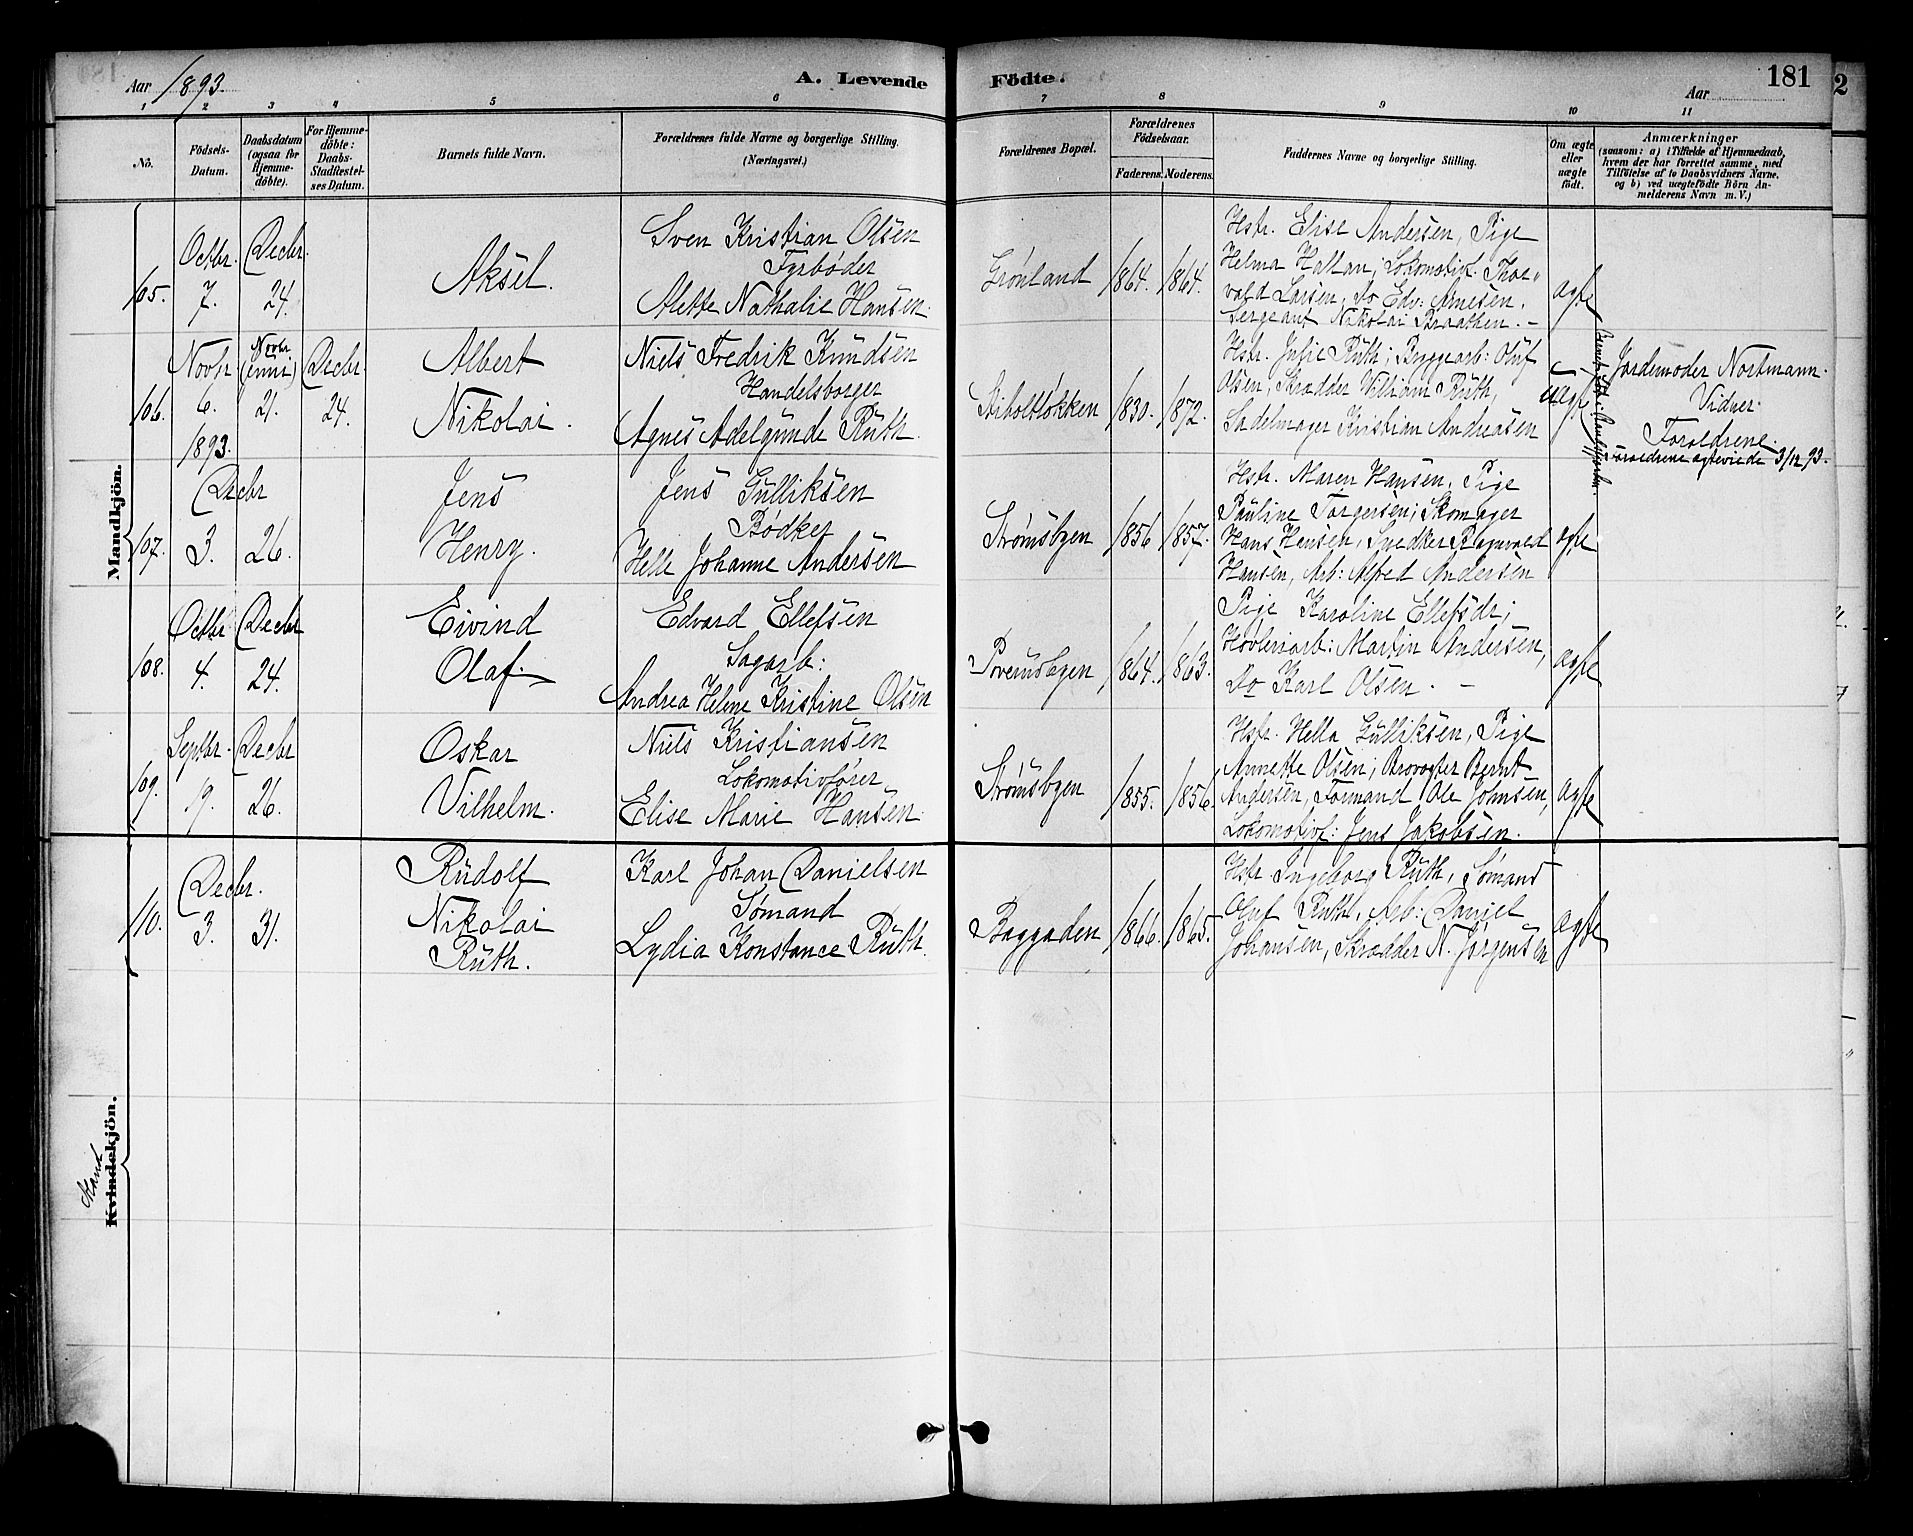 Aar 1893.
A. Levende Födte.
Aar
181
2
1 2 3 4 5 6 7 8 9 10 11
No.
Födsels-Datum.
Daabsdatum (ogsaa for Hjemme-döbte).
For Hjemme-döbte: Daabs-Stadfæstel-ses Datum.
Barnets fulde Navn.
Forældrenes fulde Navne og borgerlige Stilling.
(Næringsvei.)
Forældrenes Bopæl.
Forældrenes Födselsaar.
Faderens. Moderens.
Faddernes Navne og borgerlige Stilling.
Om ægte eller uægte födt.
Anmærkninger
(saasom: a) i Tilfælde af Hjemmedaab,
hvem der har forrettet samme, med
Tilföielse af to Daabsvidners Navne.
og b) ved uægtefödte Börn An-
melderens Navn m. V.)
Mandkjön.
105.
Octbr. 7.
Decbr. 24.
Aksel.
Sven Kristian Olsen
Fyrbøder
Alette Nathalie Hansen.
Grønland
1864. 1864.
Hstr. Elise Andersen, Pige
Helma Hallan; Lokomotivf. Thor-
vald Larsen, Do Edv: Arnesen.
Sergeant Nikolai Braathen. -
ægte
106.
Novbr 6. 1893.
Novbr 21.
Decbr. 24.
Albert
Nikolai.
Niels Fredrik Knudsen
Handelsborger
Agnes Adelgunde Ruth.
1830. 1872.
Hstr. Julie Ruth; Byggearb: Oluf
Olsen, Skrædder William Ruth,
Sadelmager Kristian Andreasen
uægte
Jordemoder Nortmann.
Vidner
Forældrene.
Forældrene ægteviede 3/12 93.
107.
Decbr 3. 26.
Jens
Henry.
Jens Gulliksen
Bødker
Helle Johanne Andersen
Strømsbyen
1856 1857.
Hstr. Maren Hansen, Pige
Pauline Torgersen; Skomager
Hans Hensen, Snedker Ragnvald
Hansen, Arb: Alfred Andersen
ægte
108.
Octbr 4.
Decbr 24.
Eivind
Olaf.
Edvard Ellefsen
Sagarb:
Andrea Helene Kristine Olsen
1864. 1863.
Pige Karoline Ellefsdr;
Høvleriarb: Martin Andersen,
Do Karl Olsen. -
ægte
109.
Septbr. 19.
Decbr 26.
Oskar
Vilhelm.
Niels Kristiansen
Lokomotivfører
Elise Marie Hansen.
Strømsbyen
1855. 1856.
Hstr. Hella Gulliksen, Pige
Annette Olsen; Brovogter Bernt
Andersen, Formand Ole Johnsen,
Lokomotivf: Jens Jakobsen.
ægte
110.
Decbr. 3. 31.
Rudolf
Nikolai
Ruth.
Karl Johan Danielsen
Sømand
Lydia Konstance Ruth.
Baggaden
1866. 1865.
Hstr. Ingeborg Ruth, Sømand
Oluf Ruth, Arb: Daniel
Johansen, Skrædder N. Jørgensen
ægte
Mand
Kvindekjön.